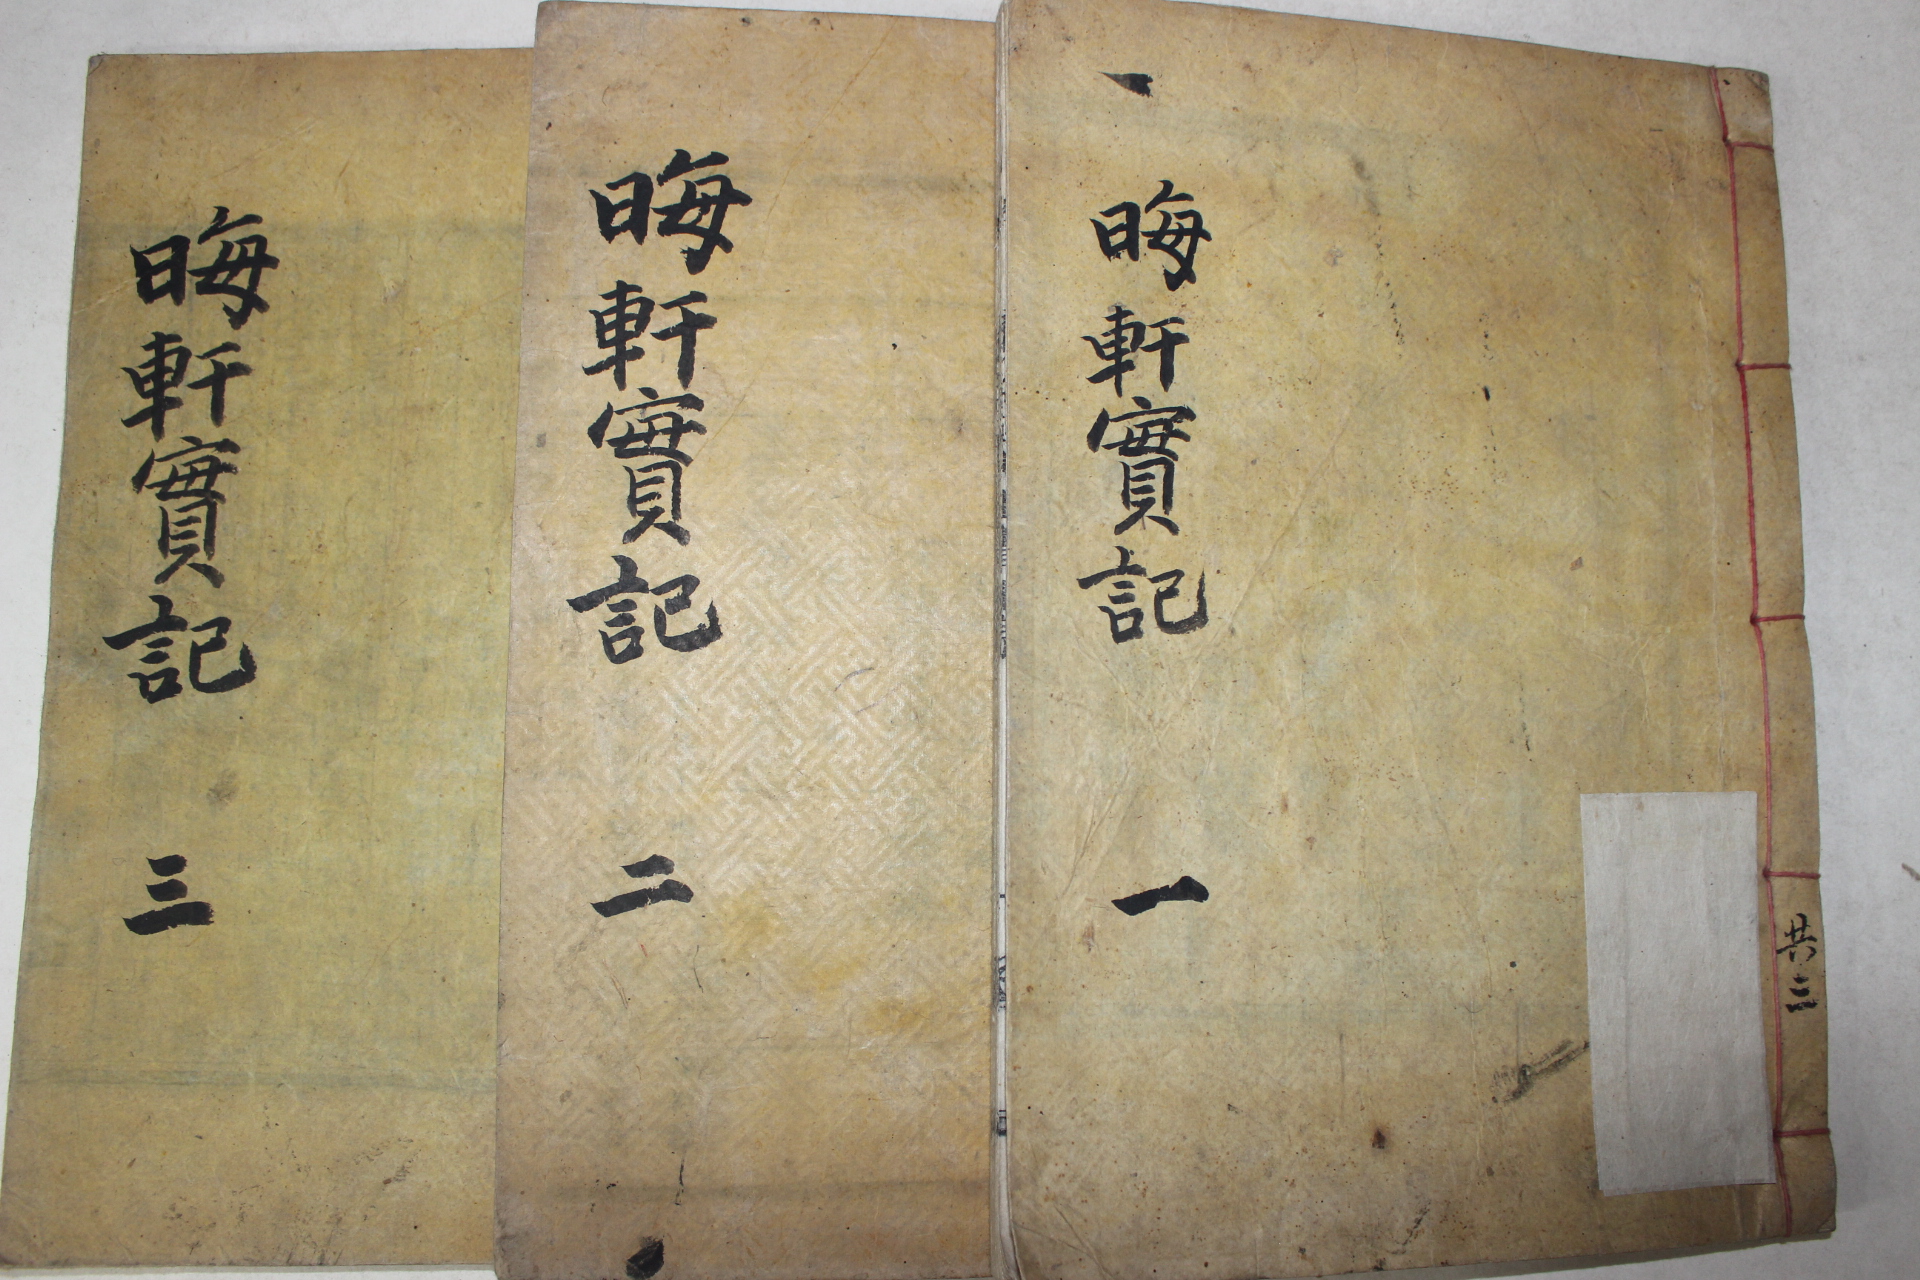 晦軒實記 一
共三
晦軒實記 二
晦軒實記 三